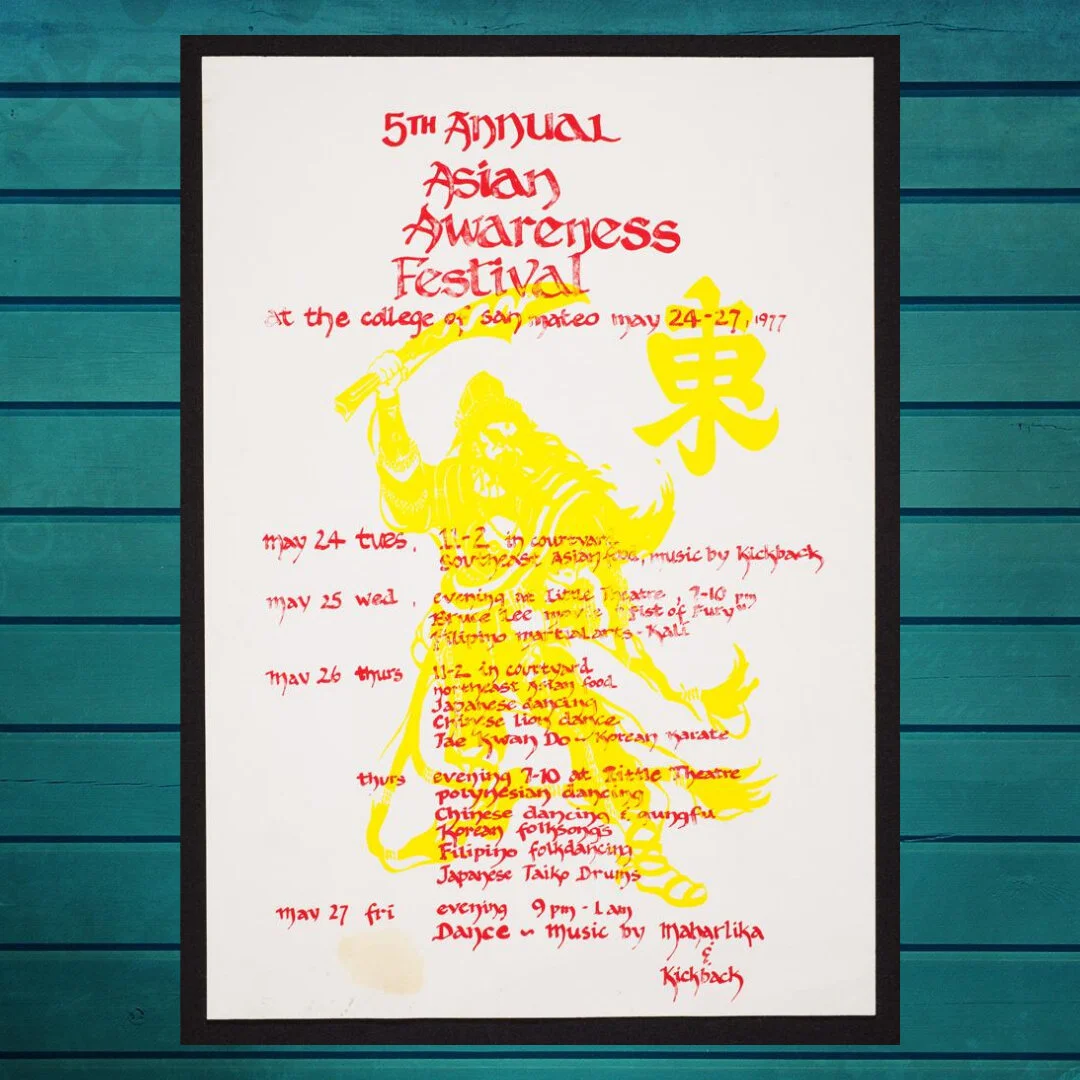 5TH Annual
Asian
Awareness
Festival
at the college of san mateo may 24-27, 1977
東
may 24 tues, 11-2 in courtyard
Southeast Asian food, music by Kickback
may 25 wed, evening at Little Theatre, 7-10 pm
Bruce Lee movie "Fist of Fury"
Filipino martial arts - Kali
may 26 thurs 11-2 in courtyard
northeast Asian food
Japanese dancing
Chinese lion dance
Tae Kwan Do ~ Korean Karate
thurs evening 7-10 at Little Theatre
polynesian dancing
Chinese dancing & gungfu
Korean folksongs
Filipino folkdancing
Japanese Taiko Drums
may 27 fri evening 9pm - 1am
Dance ~ Music by Maharlika
&
Kickback